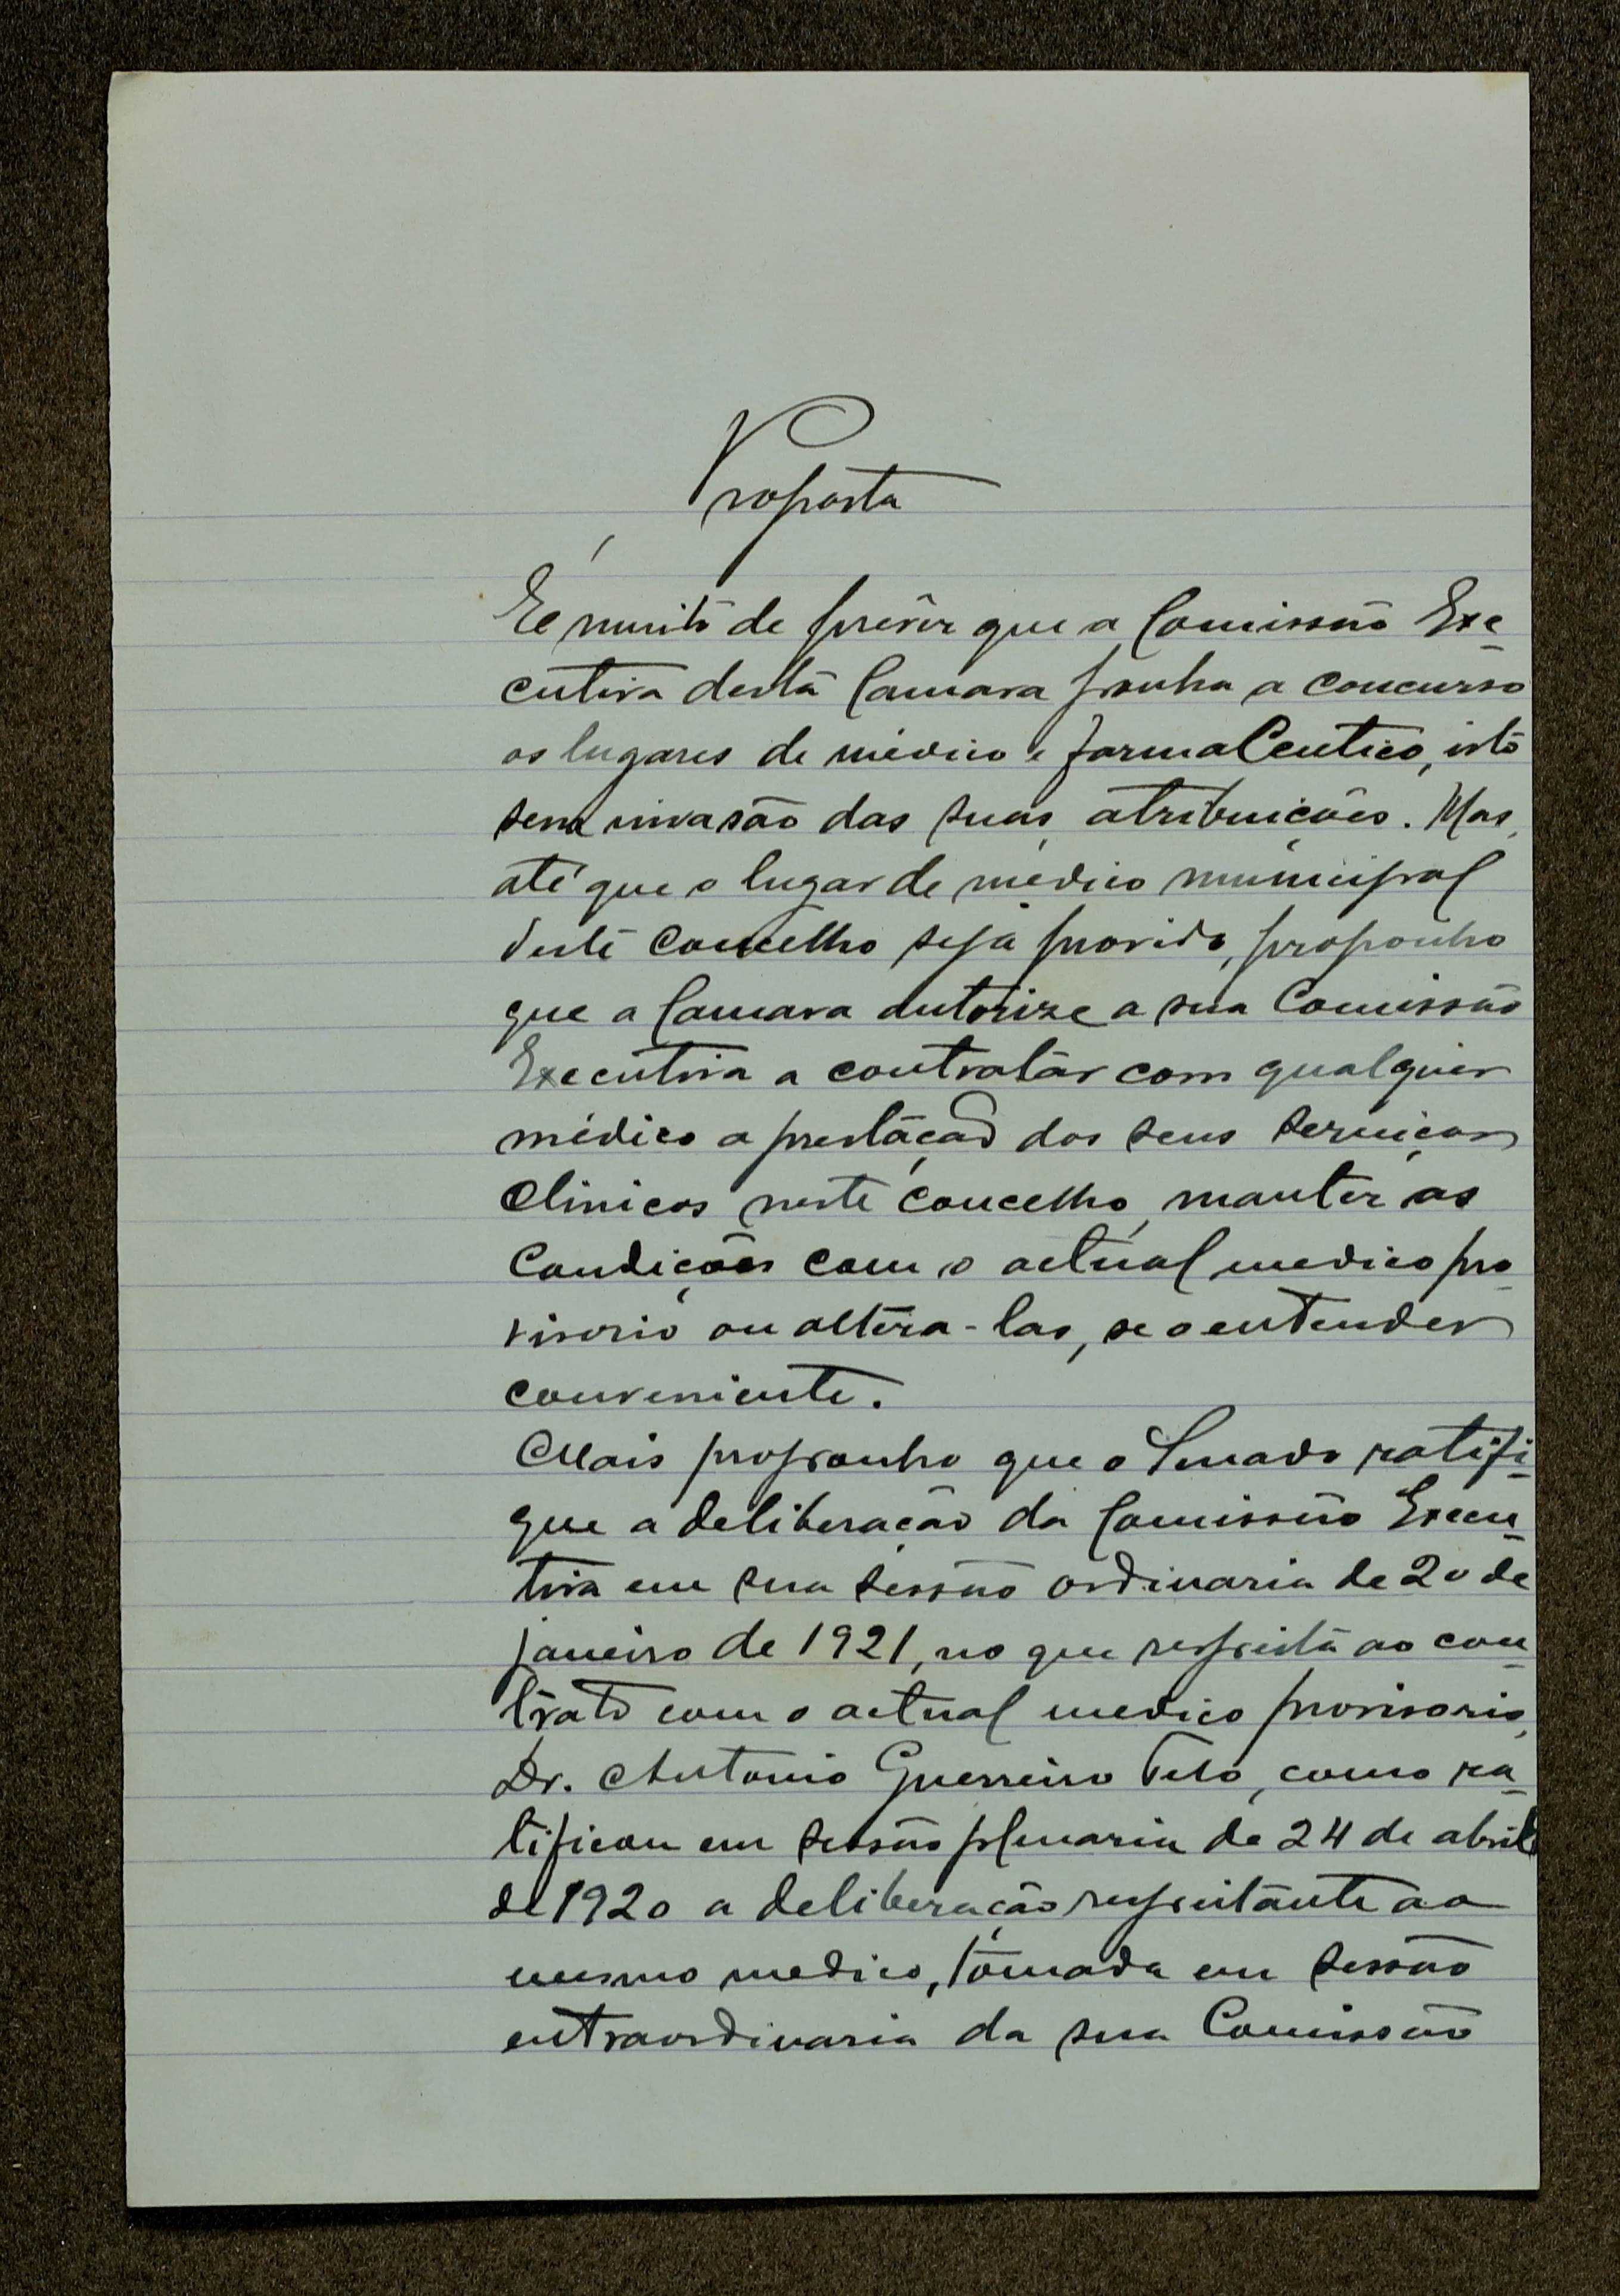 Proposta
É muito de prevêr que a Comissão Exe-
cutiva desta Camara ponha a concurso
os lugares de médico e farmaceutico, isto
sem invasão das suas atribuições. Mas,
até que o lugar de médico municipal
deste concelho seja provido, proponho
que a Camara autorize a sua Comissão
Executiva a contratar com qualquer
médico a prestação dos seus serviços
clinicos neste concelho, manter as
condições com o actual medico pro-
visorio ou altera-las, se o entender
conveniente.
Mais proponho que o Senado ratifi-
que a deliberação da Comissão Execu-
tiva em sua sessão ordinaria de 20 de
janeiro de 1921, no que respeita ao con-
trato com o actual medico provisorio,
Dr. Antonio Guerreiro Telo, como ra-
tificou em sessão plenaria de 24 de abril
de 1920 a deliberação respeitante ao
mesmo medico, tomada em sessão
extraordinaria da sua Comissão